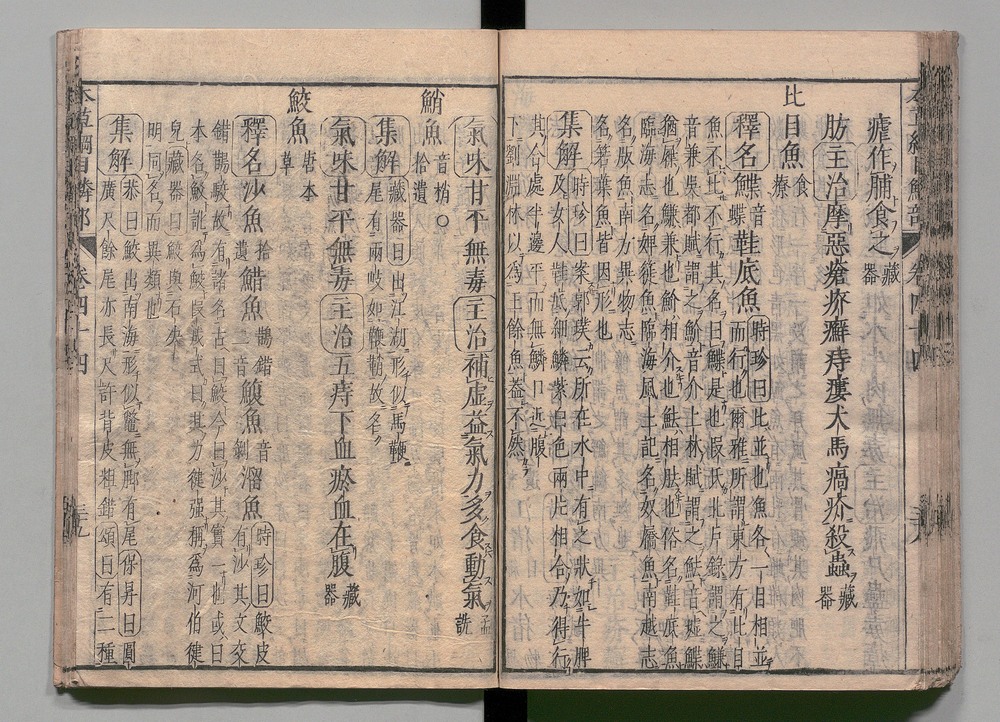 瘧作脯食之藏器
肪主治摩惡瘡疥癬痔瘻犬馬瘑疥殺蟲藏器
比目魚食療
釋名鰈音蝶鞋底魚時珍曰比並也魚各一目相並
而行也爾雅所謂東方有比目
魚不比不行其名曰鰈是也段氏北户錄謂之鰜
音兼吳都賦謂之魪音介上林賦謂之魼音墟鰈
猶屧也鰜兼也魪相介也魼相胠也俗名鞋底魚
臨海志名婢簁魚臨海風土記名奴屩魚南越志
名版魚南方異物志
名箬葉魚皆因形也
集解時珍曰案郭璞云所在水中有之狀如牛脾
及女人鞋底細鱗紫白色兩片相合乃得行
其合處半邊平而無鱗口近腹
下劉淵林以為王餘魚蓋不然
氣味甘平無毒主治補虛益氣力多食動氣孟詵
鮹魚音梢拾遺
集解藏器曰出江湖形似馬鞭
尾有兩岐如鞭鞘故名
氣味甘平無毒主治五痔下血瘀血在腹藏器
鮫魚唐本草
釋名沙魚拾遺䱜魚鵲錯二音鰒魚音剝溜魚時珍曰鮫皮
有沙其文交
錯鵲駁故有諸名古曰鮫今曰沙其實一也或曰
本名鮫訛為鮫段成式曰其力健強稱為河伯健
兒藏器曰鮫與石決
明同名而異類也
集解恭曰鮫出南海形似鼈無脚有尾保昇曰圓
廣尺餘尾亦長尺許背皮粗錯頌曰有二種
本草綱目鱗部
卷四十四